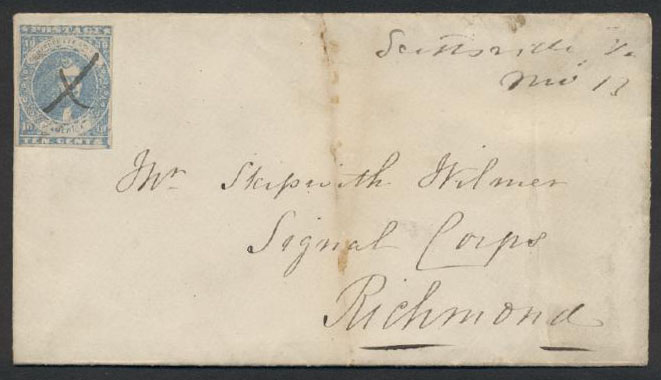 POSTAGE
10 10
X
10 10
TEN CENTS
Scottsville Va
Nov 13
Mr Skipwith Wilmer
Signal Corps
Richmond